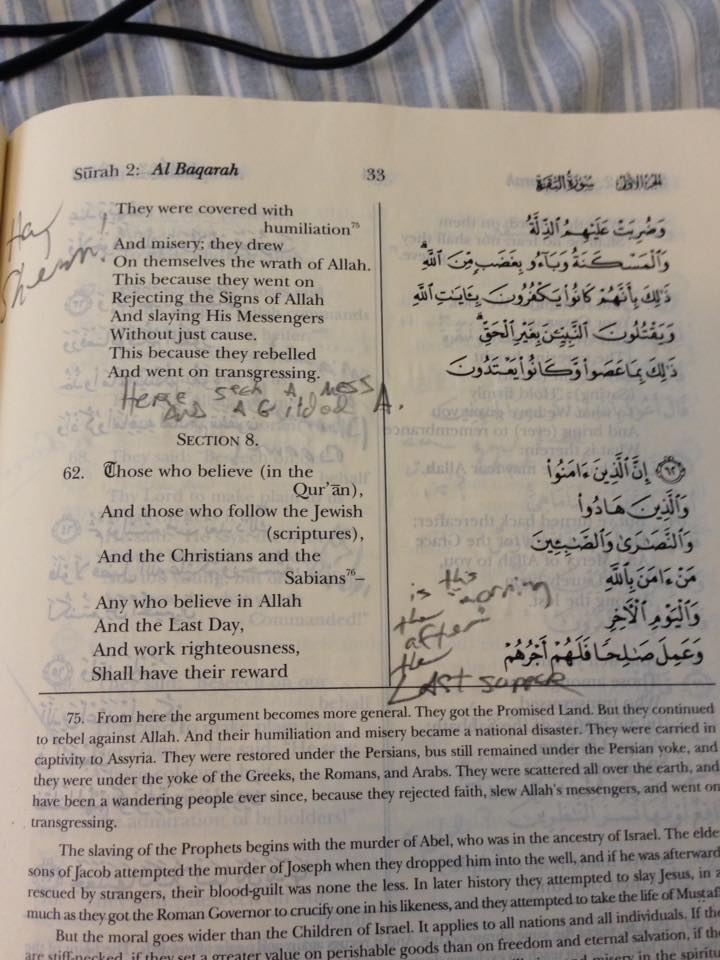 Sūrah 2: Al Baqarah
33
الجزء الأول
سورة البقرة
They were covered with
humiliation75
And misery; they drew
On themselves the wrath of Allah.
This because they went on
Rejecting the Signs of Allah
And slaying His Messengers
Without just cause.
This because they rebelled
And went on transgressing.
A MESS
AND A Guilded A.
SECTION 8.
62. Those who believe (in the
Qur'ān),
And those who follow the Jewish
(scriptures),
And the Christians and the
Sabians76–
Any who believe in Allah
And the Last Day,
And work righteousness,
Shall have their reward
وَضُرِبَتْ عَلَيْهِمُ الذِّلَّةُ
وَالْمَسْكَنَةُ وَبَآءُو بِغَضَبٍ مِّنَ اللَّهِ ۗ
ذَٰلِكَ بِأَنَّهُمْ كَانُوا۟ يَكْفُرُونَ بِـَٔايَٰتِ اللَّهِ
وَيَقْتُلُونَ النَّبِيِّـۧنَ بِغَيْرِ الْحَقِّ ۗ
ذَٰلِكَ بِمَا عَصَوا۟ وَّكَانُوا۟ يَعْتَدُونَ
٦٢ إِنَّ الَّذِينَ ءَامَنُوا۟
وَالَّذِينَ هَادُوا۟
وَالنَّصَٰرَىٰ وَالصَّٰبِـِٔينَ
مَنْ ءَامَنَ بِاللَّهِ
وَالْيَوْمِ الْءَاخِرِ
وَعَمِلَ صَٰلِحًا فَلَهُمْ أَجْرُهُمْ
is the
morning
the after
the
LAST supper
75. From here the argument becomes more general. They got the Promised Land. But they continued
to rebel against Allah. And their humiliation and misery became a national disaster. They were carried in
captivity to Assyria. They were restored under the Persians, bus still remained under the Persian yoke, and
they were under the yoke of the Greeks, the Romans, and Arabs. They were scattered all over the earth, and
have been a wandering people ever since, because they rejected faith, slew Allah's messengers, and went on
transgressing.
The slaving of the Prophets begins with the murder of Abel, who was in the ancestry of Israel. The elde
sons of Jacob attempted the murder of Joseph when they dropped him into the well, and if he was afterward
rescued by strangers, their blood-guilt was none the less. In later history they attempted to slay Jesus, in a
much as they got the Roman Governor to crucify one in his likeness, and they attempted to take the life of Mustaf
But the moral goes wider than the Children of Israel. It applies to all nations and all individuals. If the
are stiff-necked, if they set a greater value on perishable goods than on freedom and eternal salvation, if the
misery in the spiritu